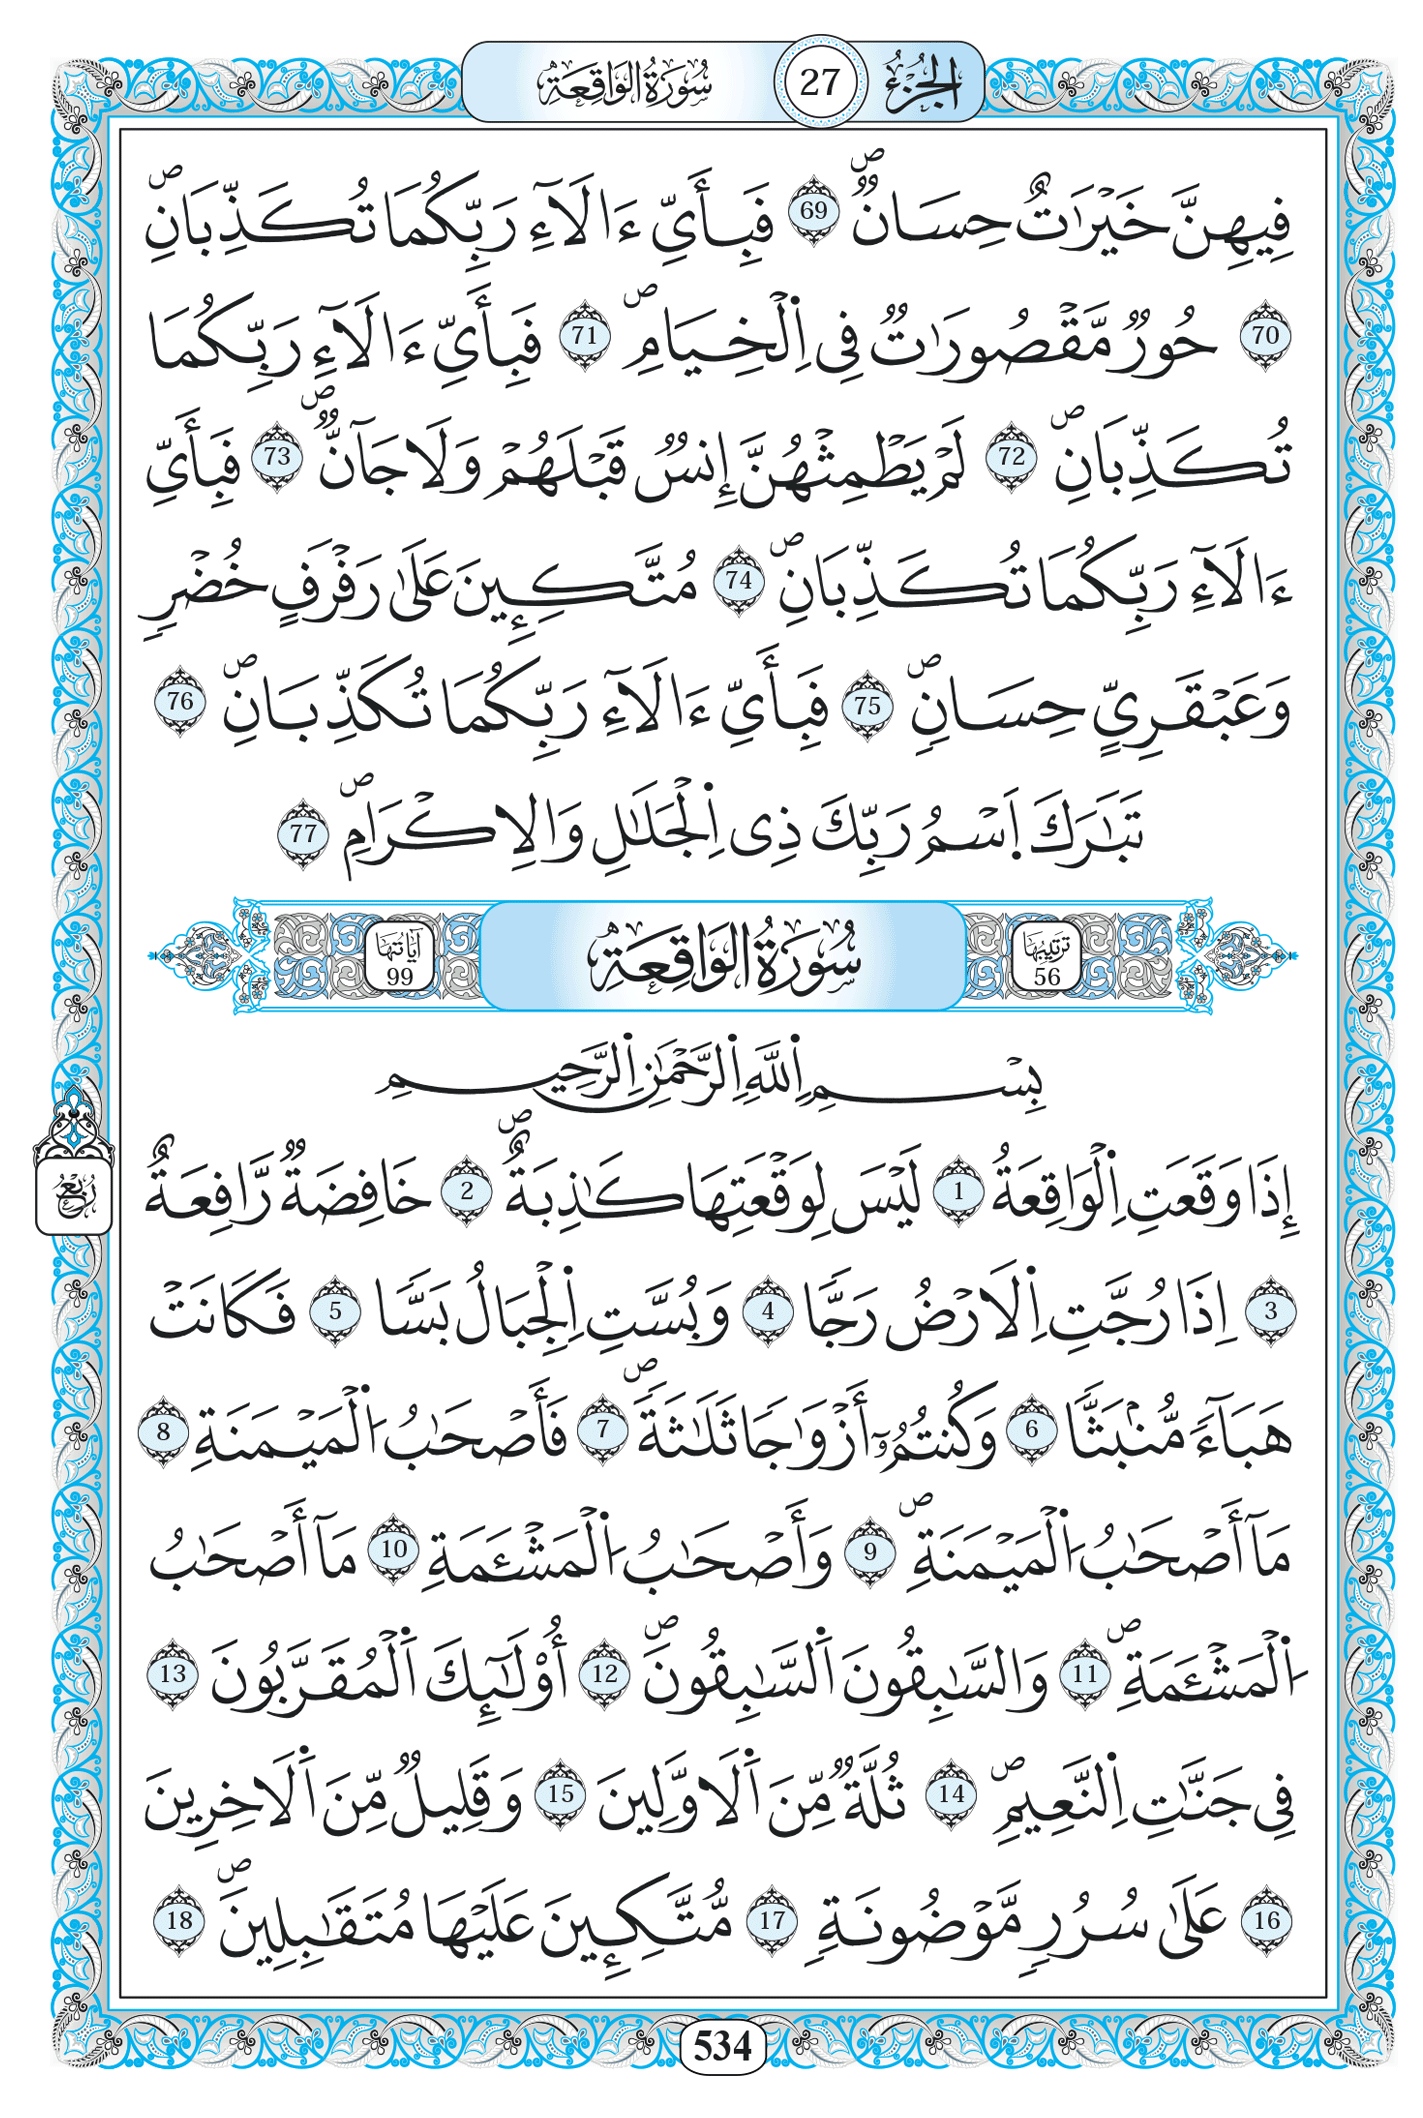 الجزء 27 سُورَةُ الوَاقِعَةِ
فِيهِنَّ خَيْرَٰتٌ حِسَانٌۖ 69 فَبِأَيِّ ءَالَآءِ رَبِّكُمَا تُكَذِّبَانِۖ
70 حُورٌ مَّقْصُورَٰتٌ فِى اِ۬لْخِيَامِۖ 71 فَبِأَيِّ ءَالَآءِ رَبِّكُمَا
تُكَذِّبَانِۖ 72 لَمْ يَطْمِثْهُنَّ إِنسٌ قَبْلَهُمْ وَلَا جَآنٌّۖ 73 فَبِأَيِّ
ءَالَآءِ رَبِّكُمَا تُكَذِّبَانِۖ 74 مُتَّكِـِٕينَ عَلَىٰ رَفْرَفٍ خُضْرٍ
وَعَبْقَرِيٍّ حِسَانٍۖ 75 فَبِأَيِّ ءَالَآءِ رَبِّكُمَا تُكَذِّبَانِۖ 76
تَبَٰرَكَ اَ۪سْمُ رَبِّكَ ذِى اِ۬لْجَلَٰلِ وَالِاكْرَامِۖ 77
ترتيبها 56 سُورَةُ الوَاقِعَةِ آيَاتُهَا 99
بِسْمِ اِ۬للَّهِ اِ۬لرَّحْمَٰنِ اِ۬لرَّحِيمِ
إِذَا وَقَعَتِ اِ۬لْوَاقِعَةُ 1 لَيْسَ لِوَقْعَتِهَا كَٰذِبَةٌۖ 2 خَافِضَةٌ رَّافِعَةٌ
ربع
3 اِذَا رُجَّتِ اِ۬لَارْضُ رَجًّا 4 وَبُسَّتِ اِ۬لْجِبَالُ بَسًّا 5 فَكَانَتْ
هَبَآءً مُّنۢبَثًّا 6 وَكُنتُمُۥٓ أَزْوَٰجًا ثَلَٰثَةًۖ 7 فَأَصْحَٰبُ اُ۬لْمَيْمَنَةِ 8
مَآ أَصْحَٰبُ اُ۬لْمَيْمَنَةِۖ 9 وَأَصْحَٰبُ اُ۬لْمَشْـَٔمَةِ 10 مَآ أَصْحَٰبُ
اُ۬لْمَشْـَٔمَةِۖ 11 وَالسَّٰبِقُونَ اَ۬لسَّٰبِقُونَۖ 12 أُوْلَٰٓئِكَ اَ۬لْمُقَرَّبُونَ 13
فِى جَنَّٰتِ اِ۬لنَّعِيمِۖ 14 ثُلَّةٌ مِّنَ اَ۬لَاوَّلِينَ 15 وَقَلِيلٌ مِّنَ اَ۬لَاخِرِينَ
16 عَلَىٰ سُرُرٍ مَّوْضُونَةٍ 17 مُّتَّكِـِٕينَ عَلَيْهَا مُتَقَٰبِلِينَۖ 18
534